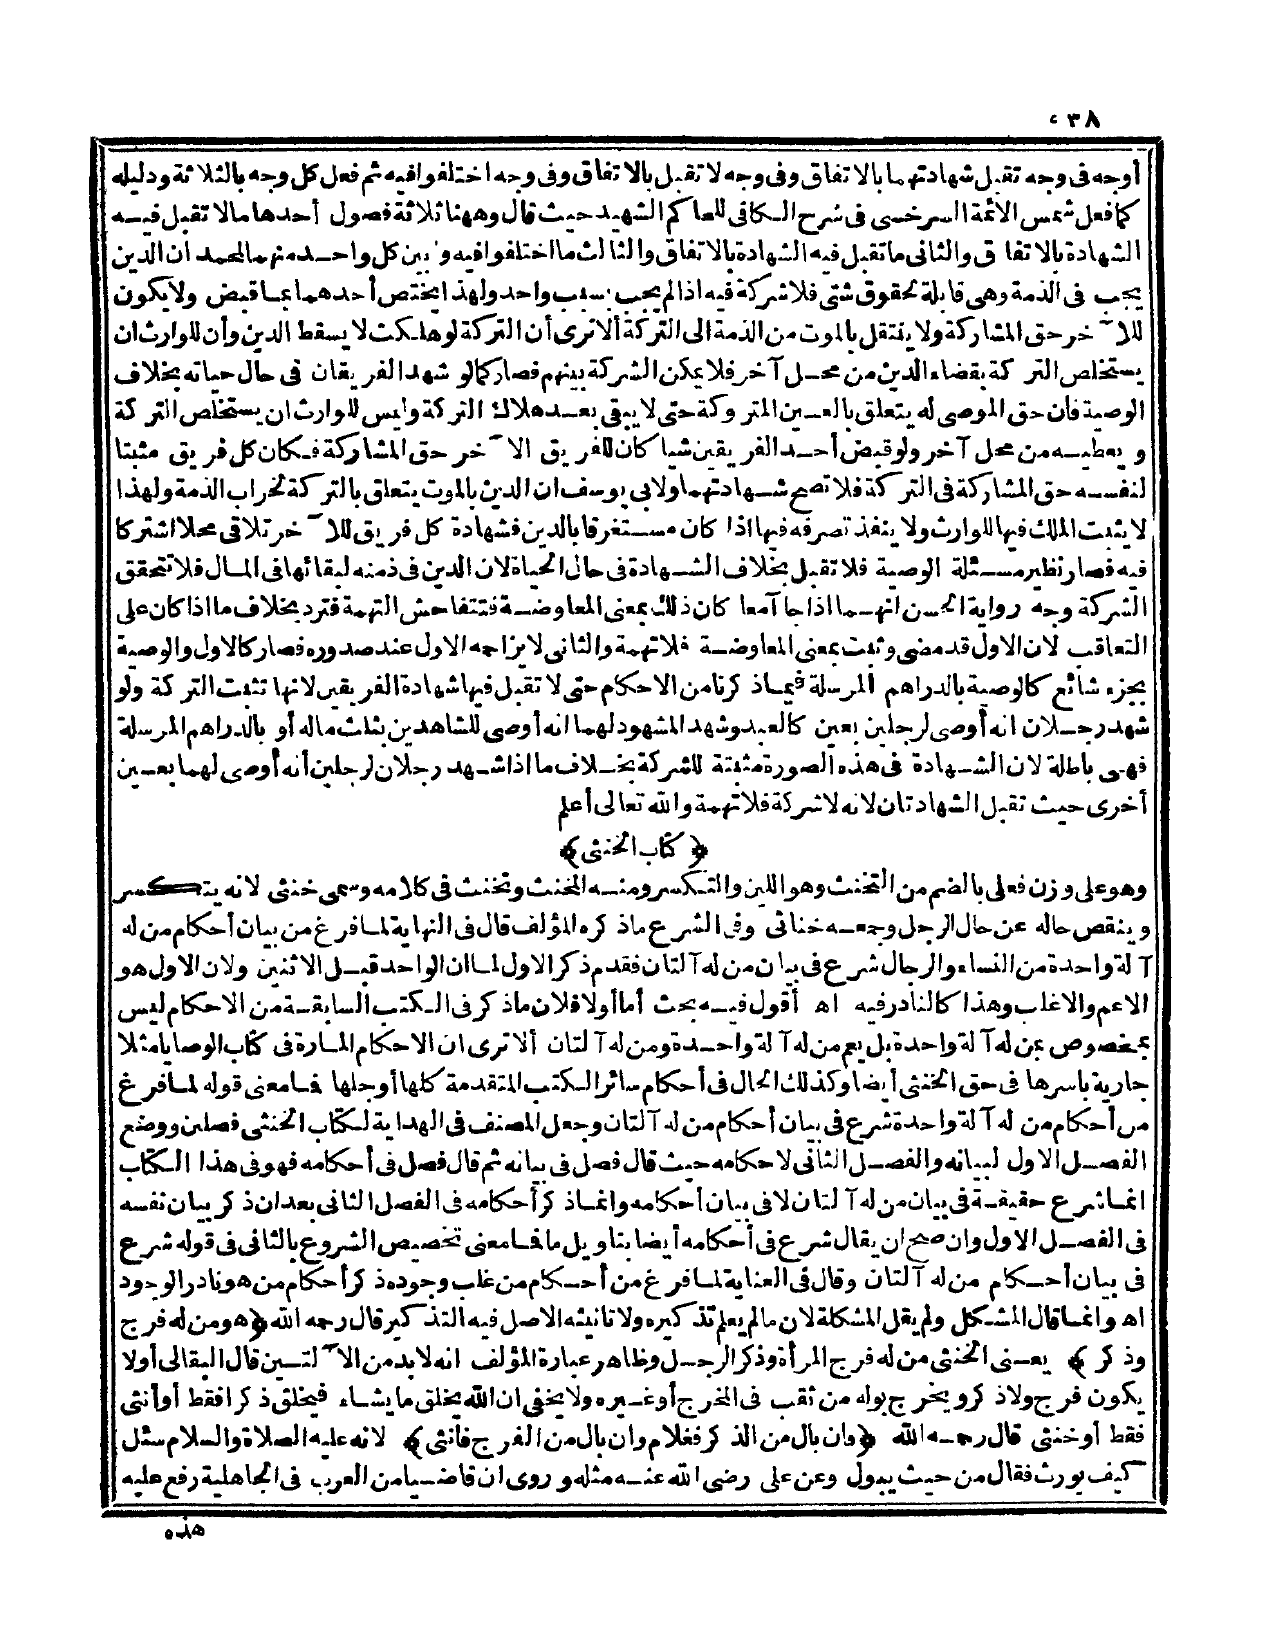 ٥٣٨
أوجه فى وجه تقبل شهادتهما بالاتفاق وفى وجه لا تقبل بالاتفاق وفى وجه اختلفوا فيه ثم فعل كل وجه بالثلاثة ودليله
كما فعل شمس الائمة السرخسى فى شرح الكافى للحاكم الشهيد حيث قال وههنا ثلاثة فصول أحدها ما لا تقبل فيه
الشهادة بالاتفاق والثانى ما تقبل فيه الشهادة بالاتفاق والثالث ما اختلفوا فيه وبين كل واحد منهم المحمد ان الدين
يجب فى الذمة وهى قابلة لحقوق شتى فلا شركة فيه اذا لم يجب بسبب واحد ولهذا يختص أحدهما بما قبض ولا يكون
للآخر حق المشاركة ولا ينتقل بالموت من الذمة الى التركة ألا ترى أن التركة لو هلكت لا يسقط الدين وأن للوارث ان
يستخلص التركة بقضاء الدين من محل آخر فلا يمكن الشركة بينهم فصار كما لو شهد الفريقان فى حال حياته بخلاف
الوصية فأن حق الموصى له يتعلق بالعين المتروكة حتى لا يبقى بعد هلاك التركة وليس للوارث ان يستخلص التركة
ويعطيه من محل آخر ولو قبض أحد الفريقين شيا كان للفريق الآخر حق المشاركة فكان كل فريق مثبتا
لنفسه حق المشاركة فى التركة فلا تصح شهادتهما ولابى يوسف ان الدين بالموت يتعلق بالتركة لخراب الذمة ولهذا
لا يثبت الملك فيها للوارث ولا ينفذ تصرفه فيها اذا كان مستغرقا بالدين فشهادة كل فريق للآخر تلاقى محلا اشتركا
فيه فصار نظير مسئلة الوصية فلا تقبل بخلاف الشهادة فى حال الحياة لان الدين فى ذمته لبقائها فى المال فلا تتحقق
الشركة وجه رواية الحسن انهما اذا جاآ معا كان ذلك بمعنى المعاوضة فتتفاحش التهمة فترد بخلاف ما اذا كان على
التعاقب لان الاول قد مضى وثبت بمعنى المعاوضة فلا تهمة والثانى لا يزاحمه الاول عند صدوره فصار كالاول والوصية
بجزء شائع كالوصية بالدراهم المرسلة فيما ذكرنا من الاحكام حتى لا تقبل فيها شهادة الفريقين لانها تثبت التركة ولو
شهد رجلان انه أوصى لرجلين بعين كالعبد وشهد المشهود لهما انه أوصى للشاهدين بثلث ماله أو بالدراهم المرسلة
فهى باطلة لان الشهادة فى هذه الصورة مثبتة للشركة بخلاف ما اذا شهد رجلان لرجلين أنه أوصى لهما بعين
أخرى حيث تقبل الشهادتان لانه لا شركة فلا تهمة والله تعالى أعلم
﴿كتاب الخنثى﴾
وهو على وزن فعلى بالضم من التخنث وهو اللين والتكسر ومنه المخنث وتخنث فى كلامه وسمى خنثى لانه يتكسر
وينقص حاله عن حال الرجل وجمعه خناثى وفى الشرع ماذكره المؤلف قال فى النهاية لما فرغ من بيان أحكام من له
آلة واحدة من النساء والرجال شرع فى بيان من له آلتان فقدم ذكر الاول لما ان الواحد قبل الاثنين ولان الاول هو
الاعم والاغلب وهذا كالنادر فيه اه أقول فيه بحث أما أولا فلان ماذكر فى الكتب السابقة من الاحكام ليس
بمخصوص بمن له آلة واحدة بل يعم من له آلة واحدة ومن له آلتان ألا ترى ان الاحكام المارة فى كتاب الوصايا مثلا
جارية باسرها فى حق الخنثى أيضا وكذلك الحال فى أحكام سائر الكتب المتقدمة كلها أو جلها فما معنى قوله لما فرغ
من أحكام من له آلة واحدة شرع فى بيان أحكام من له آلتان وجعل المصنف فى الهداية لكتاب الخنثى فصلين ووضع
الفصل الاول لبيانه والفصل الثانى لاحكامه حيث قال فصل فى بيانه ثم قال فصل فى أحكامه فهو فى هذا الكتاب
انما شرع حقيقة فى بيان من له آلتان لا فى بيان أحكامه وانما ذكر أحكامه فى الفصل الثانى بعد ان ذكر بيان نفسه
فى الفصل الاول وان صح ان يقال شرع فى أحكامه أيضا بتاويل ما فما معنى تخصيص الشروع بالثانى فى قوله شرع
فى بيان أحكام من له آلتان وقال فى العناية لما فرغ من أحكام من غلب وجوده ذكر أحكام من هو نادر الوجود
اه وانما قال المشكل ولم يقل المشكلة لان ما لم يعلم تذكيره ولا تانيثه الاصل فيه التذكير قال رحمه الله ﴿هو من له فرج
وذكر﴾ يعنى الخنثى من له فرج المرأة وذكر الرجل وظاهر عبارة المؤلف انه لا بد من الآلتين قال البقالى أولا
يكون فرج ولا ذكر ويخرج بوله من ثقب فى المخرج أو غيره ولا يخفى ان الله يخلق ما يشاء فيخلق ذكرا فقط أو أنثى
فقط أو خنثى قال رحمه الله ﴿وان بال من الذكر فغلام وان بال من الفرج فانثى﴾ لانه عليه الصلاة والسلام سئل
كيف يورث فقال من حيث يبول وعن على رضى الله عنه مثله وروى ان قاضيا من العرب فى الجاهلية رفع عليه
هذه